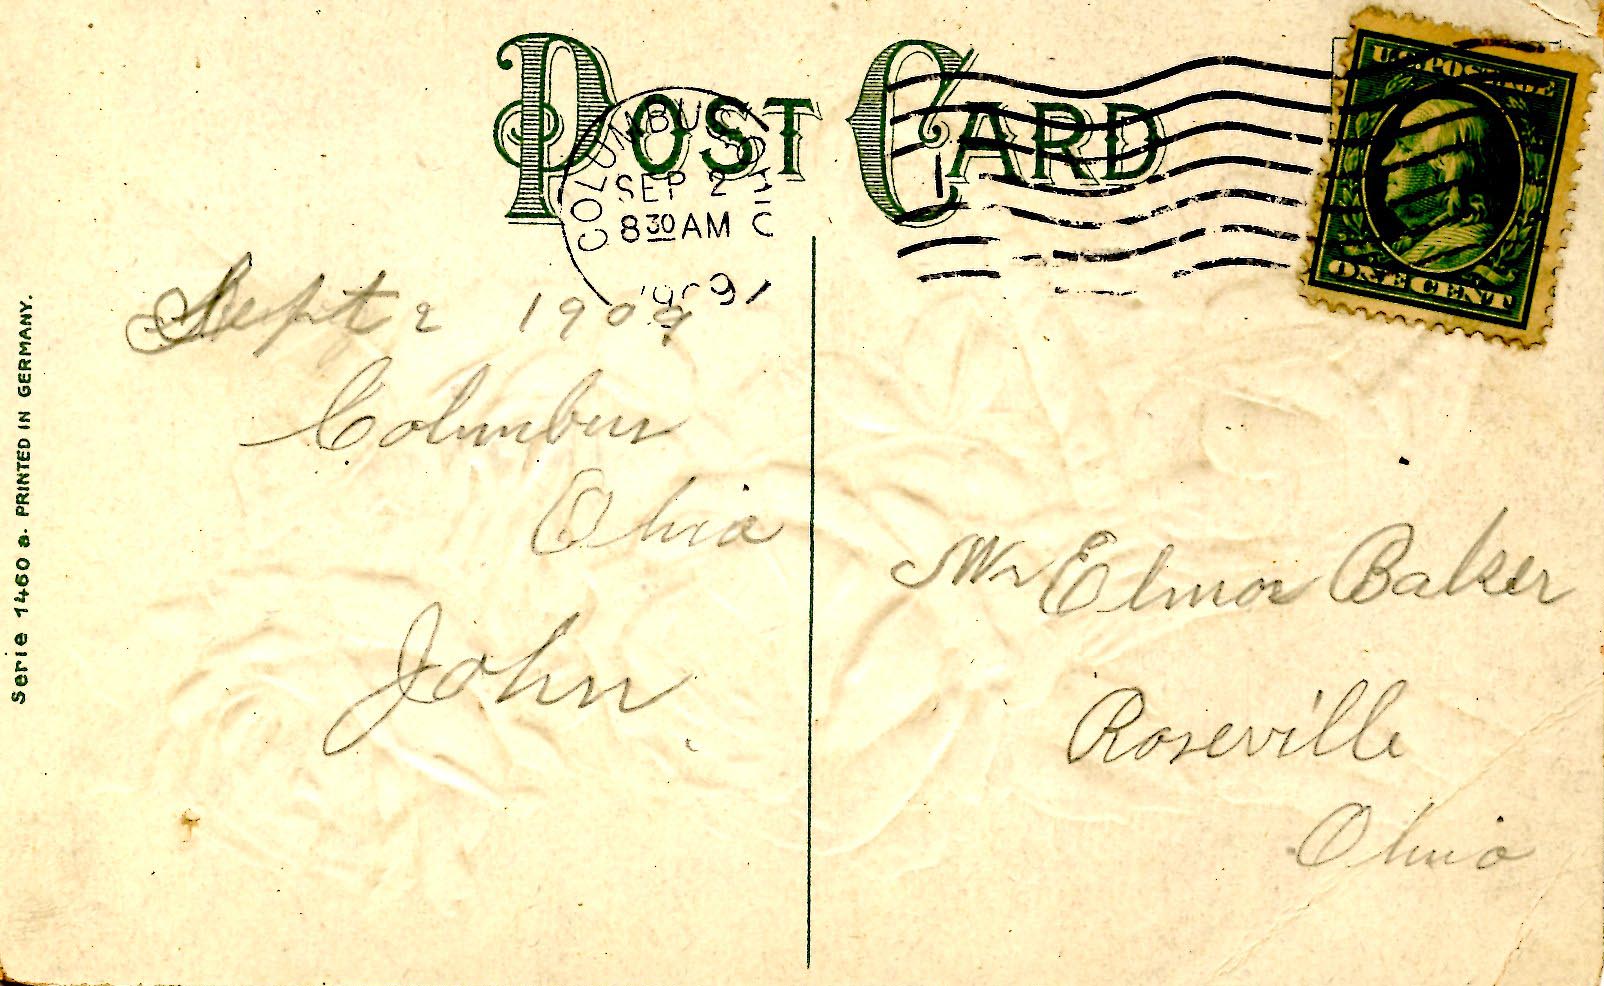 POST CARD
COLUMBUS, OHIO
SEP 2
8 30 AM
1909
1
U.S. POSTAGE
ONE CENT
Sept 2 1909
Columbus
Ohio
John
Mr Elmor Baker
Roseville
Ohio
Serie 1460 a. PRINTED IN GERMANY.